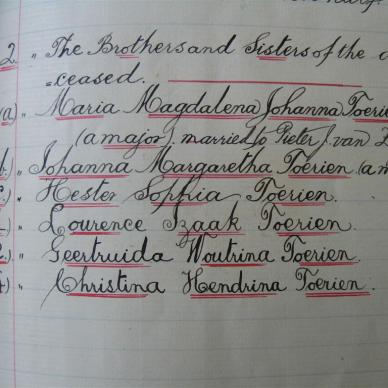 2. " The Brothers and Sisters of the
=ceased.
(a). Maria Magdalena Johanna
(a major) married to Pieter J. van
b.) " Johanna Margaretha Toerien (a
" Hester Sophia Toerien.
" Lourence Izaak Toerien.
" Geertruida Woutrina Toerien.
" Christina Hendrina Toerien.